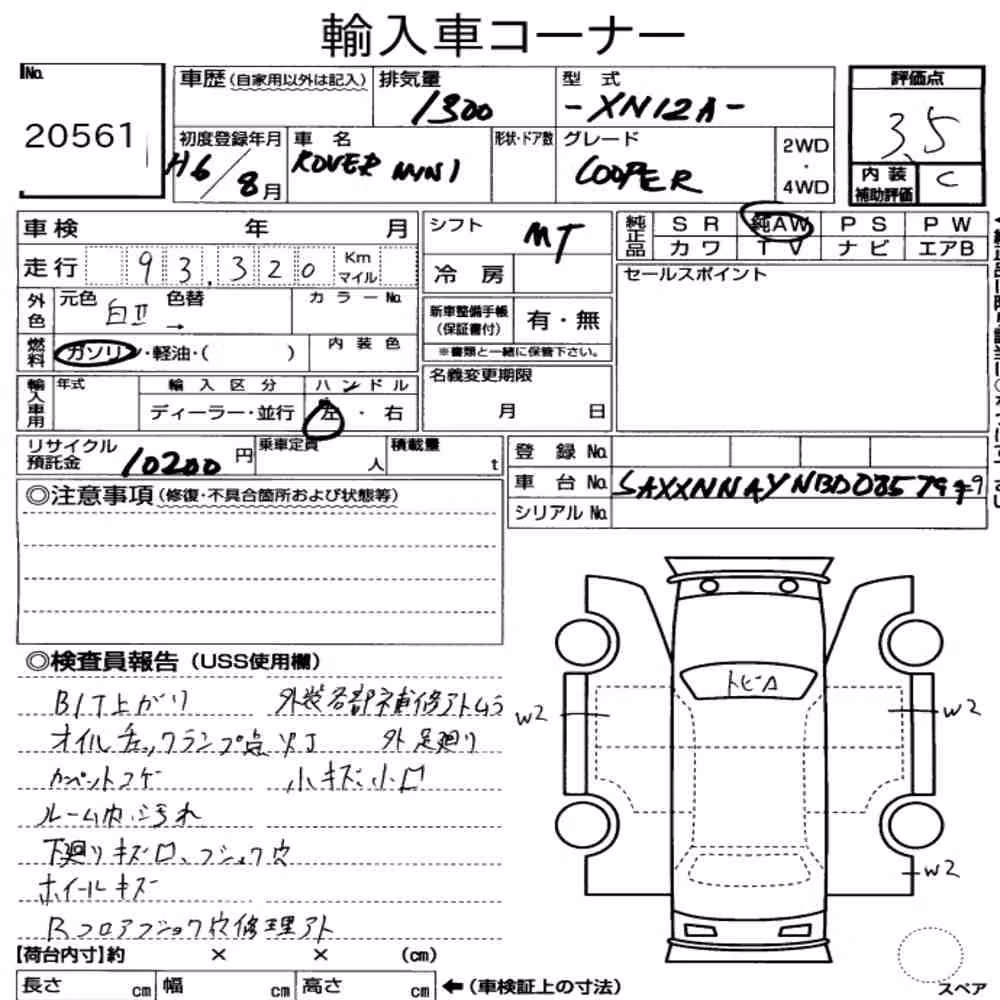 輸入車コーナー
No. 20561
車歴(自家用以外は記入) 排気量 1300 型式 -XN12A- 評価点 3.5
初度登録年月 H6/8月 車名 ROVER MINI 形状・ドア数 グレード COOPER 2WD・4WD 内装補助評価 C
車検 年 月 シフト MT 純正品 SR 純AW PS PW
カワ TV ナビ エアB
走行 93,320 Km マイル 冷房 セールスポイント
外色 元色 白II 色替 → カラーNo. 新車整備手帳(保証書付) 有・無
燃料 ガソリン・軽油・( ) 内装色 ※書類と一緒に保管下さい。
輸入車用 年式 輸入区分 ハンドル 名義変更期限
ディーラー・並行 左・右 月 日
リサイクル預託金 10200円 乗車定員 人 積載量 t 登録No.
車台No. SAXXNNAYNBD0857979
シリアルNo.
◎注意事項(修復・不具合箇所および状態等)
◎検査員報告(USS使用欄)
B/T上がり 外装各部補修アトムラ
オイルチェックランプ点灯 外 足廻り
カーペットコゲ 小キズ小凹
ルーム内汚れ
下廻りキズ凹、フショク穴
ホイールキズ
Rフロアフショク穴修理アト
トビA
W2
W2
W2
【荷台内寸】約 × × (cm)
長さ cm 幅 cm 高さ cm ←(車検証上の寸法)
スペア